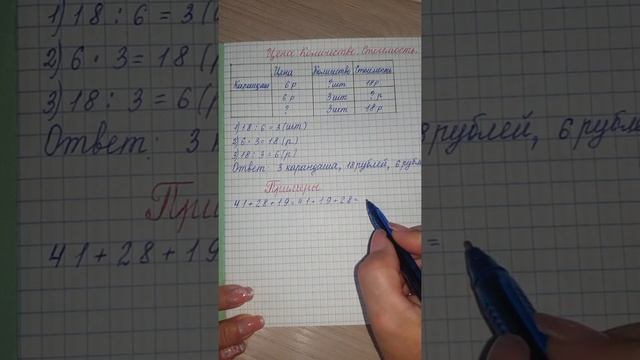 Цена. Количество. Стоимость.
Цена Количество Стоимость
Карандаш 6 р ? шт 18 р.
6 р 3 шт ? р
? 3 шт 18 р.
1) 18 : 6 = 3 (шт)
2) 6 · 3 = 18 (р.)
3) 18 : 3 = 6 (р.)
Ответ: 3 карандаша, 18 рублей, 6 рубл
Примеры
41 + 28 + 19 = 41 + 19 + 28 =